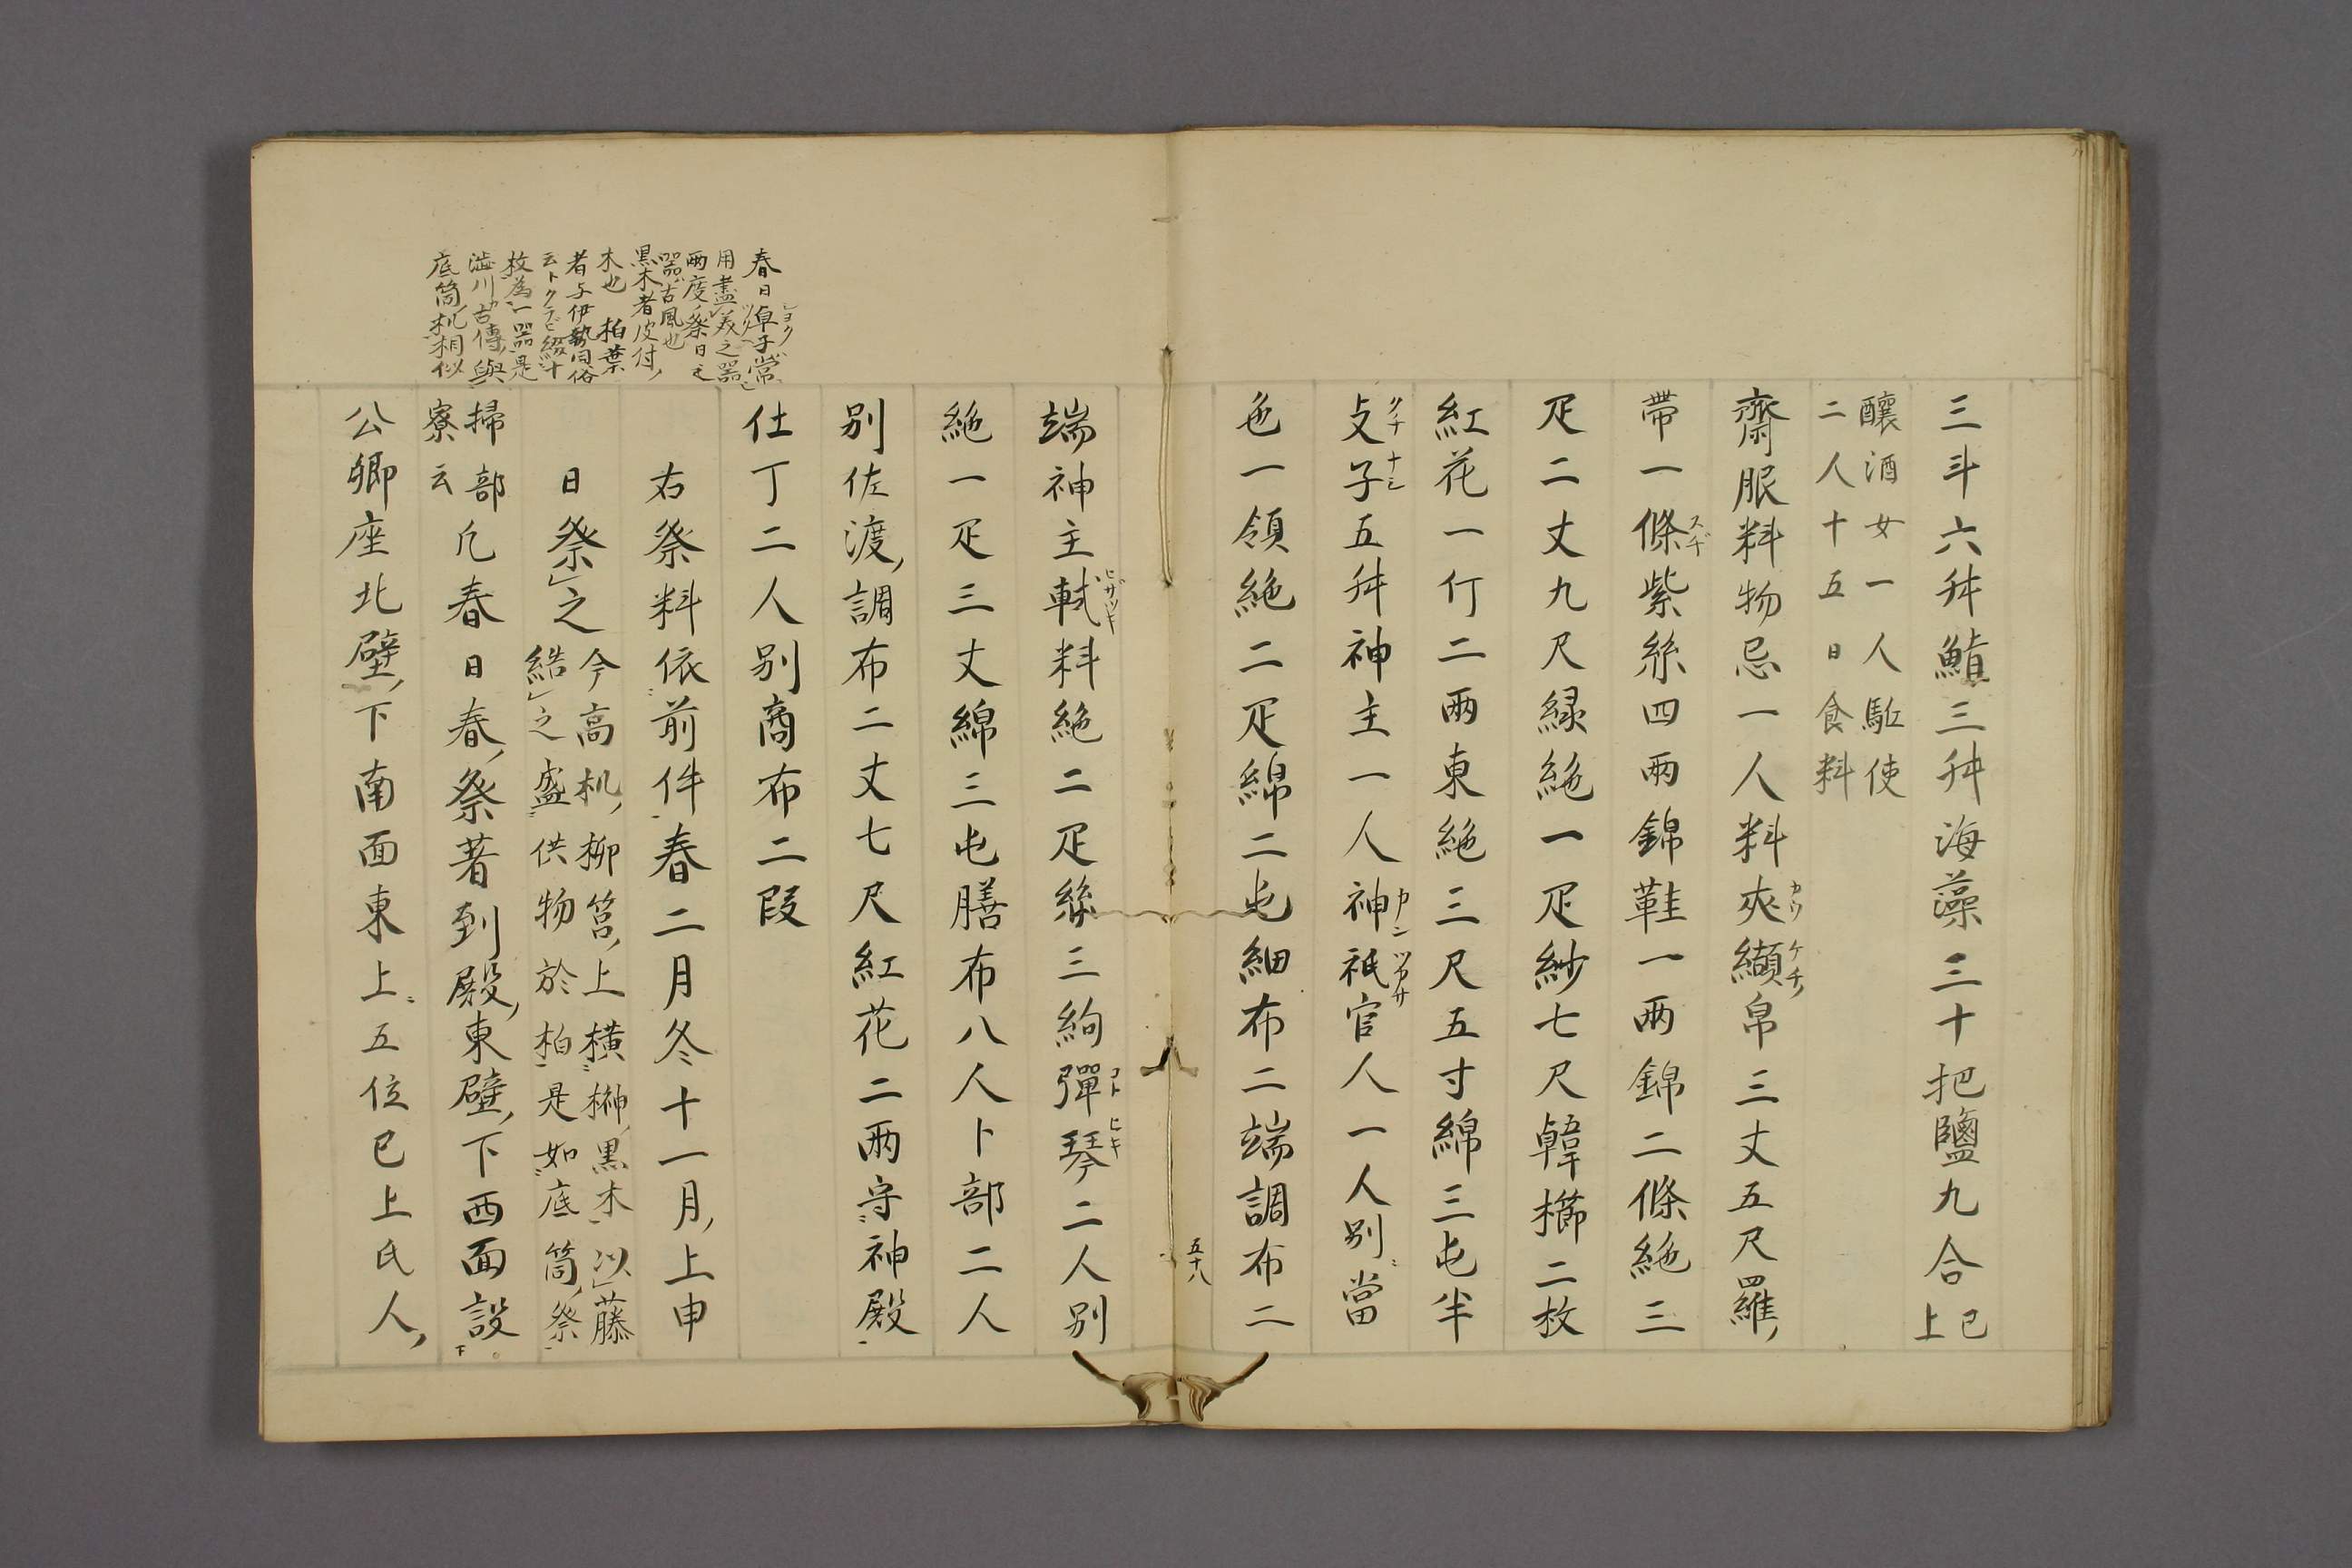 三斗六舛鮨三舛海藻三十把鹽九合已上
醸酒女一人駈使
二人十五日食料
齋服料物忌一人料夾纈帛三丈五尺羅
帶一條紫絲四兩錦鞋一兩錦二條絁三
疋二丈九尺緑絁一疋紗七尺韓櫛二枚
紅花一斤二兩東絁三尺五寸綿三屯半
支子五舛神主一人神祇官人一人別當
色一領絁二疋綿二屯細布二端調布二
五十八
端神主軾料絁二疋絲三絇彈琴二人別
絁一疋三丈綿三屯膳布八人卜部二人
別佐渡調布二丈七尺紅花二兩守神殿
仕丁二人別商布二段
右祭料依前件春二月冬十一月上申
日祭之
今高机柳筥上横榊黒木以藤
結之盛供物於柏是如底筒祭
掃部
寮云
凡春日春祭著到殿東壁下西面設
公卿座北壁下南面東上五位已上氏人
春日卓子常
用盡美之器
兩度祭日之
器古風也
黒木者皮付
木也 柏葉
者与伊勢同俗
云トクラビ綴十
枚為一器是
澁川古傳與
底筒机相似